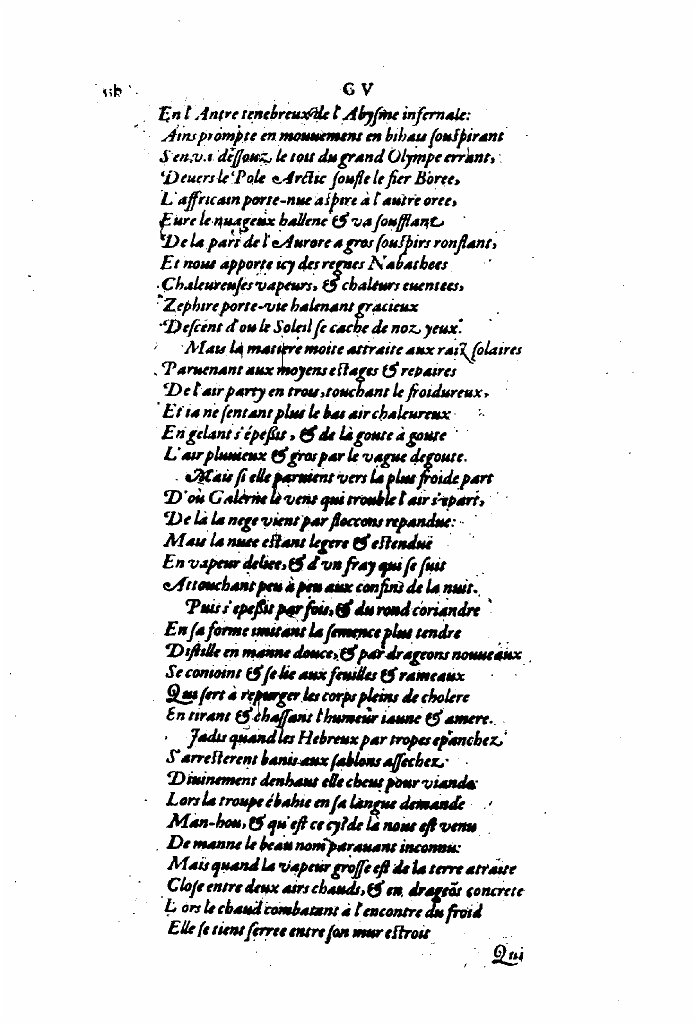 G V
En l'Antre tenebreux de l'Abysme infernale:
Ains prompte en mouuement en bihais souspirant
S'en va dessouz le toit du grand Olympe errant,
Deuers le Pole Arctic soufle le fier Boree,
L'affricain porte-nue aspire à l'autre oree,
Eure le nuageux hallene & va soufflant
De la part de l'Aurore a gros souspirs ronflant,
Et nous apporte icy des regnes Nabathees
Chaleureuses vapeurs, & chaleurs euentees,
Zephire porte-vie halenant gracieux
Descent d'ou le Soleil se cache de noz yeux.
Mais la matiere moite attraite aux raiz solaires
Paruenant aux moyens estages & repaires
De l'air party en trois, touchant le froidureux,
Et ia ne sentant plus le bas air chaleureux
En gelant s'épessit, & de là goute à goute
L'air pluuieux & gros par le vague degoute.
Mais si elle paruient vers la plus froide part
D'où Galerne le vent qui trouble l'air s'epart,
De là la nege vient par floccons repandue:
Mais la nuee estant legere & estenduë
En vapeur deliee, & d'vn fray qui se suit
Attouchant peu à peu aux confins de la nuit.
Puis s'epessit par fois, & du rond coriandre
En sa forme imitant la semence plus tendre
Distille en manne douce, & par drageons nouueaux
Se conioint & se lie aux feuilles & rameaux
Qui sert à repurger les corps pleins de cholere
En tirant & chassant l'humeur iaune & amere.
Jadis quand les Hebreux par tropes epanchez
S'arresterent banis aux sablons assechez
Diuinement denhaut elle cheut pour viande
Lors la troupe ébahie en sa langue demande
Man-hou, & qu'est ce cy? de là nous est venu
De manne le beau nom parauant inconnu:
Mais quand la vapeur grosse est de la terre atraite
Close entre deux airs chauds, & en drageõs concrete
Lors le chaud combatant à l'encontre du froid
Elle se tient serree entre son mur estroit
Qui